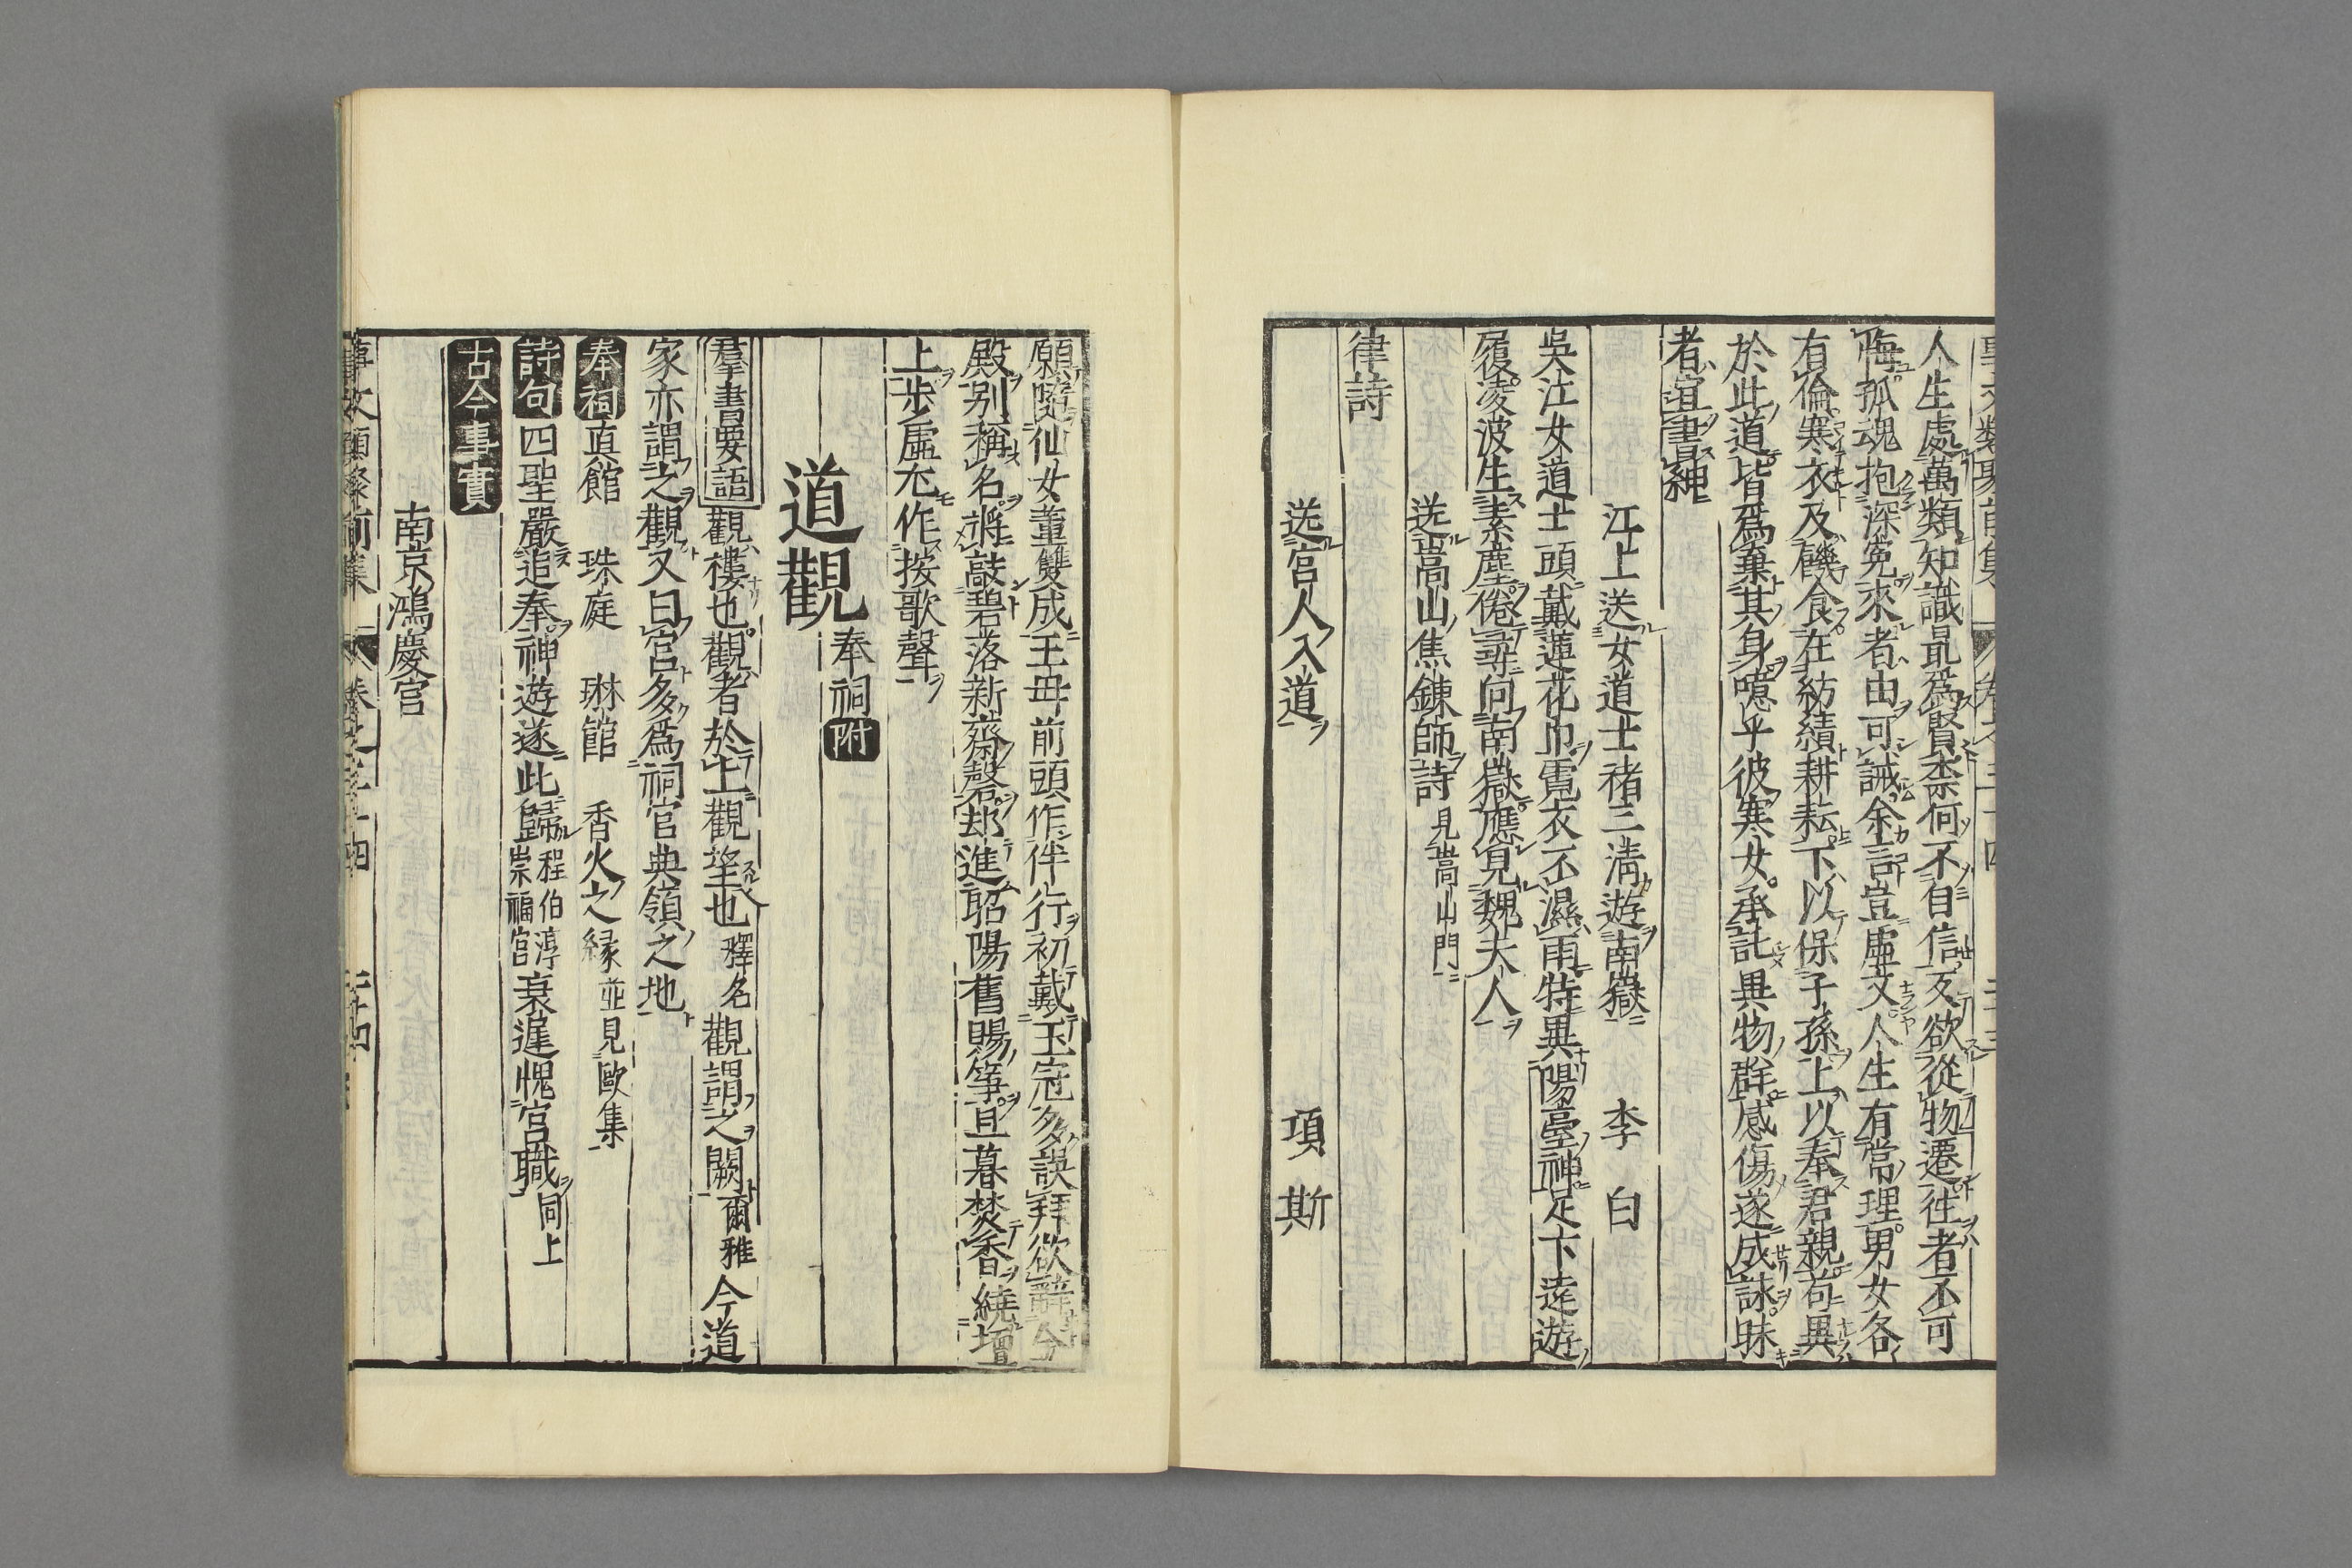 人生處萬類知識最爲賢柰何不自信反欲從物遷徃者不可
悔孤魂抱深寃來者由可誡余言豈虛文人生有常理男女各
有倫寒衣及饑食在紡績耕耘下以保子孫上以奉君親苟異
於此道皆爲棄其身噫乎彼寒女承託異物群感傷遂成詠昧
者宜書紳
江上送女道士褚三淸遊南嶽 李白
吳江女道士頭戴蓮花巾霓衣不濕雨特異陽臺神足下遠遊
履凌波生素塵倦尋向南嶽應見魏夫人
送嵩山焦鍊師詩 見嵩山門
律詩
送宮人入道 項斯
願隨仙女董雙成王母前頭作伴行初戴玉冠多誤拜欲辭金
殿別稱名將敲碧落新齋磬却進昭陽舊賜箏旦暮焚香繞壇
上步虛尤作按歌聲
道觀 奉祠附
羣書要語 觀樓也觀者於上觀望也 釋名 觀謂之闕 爾雅 今道
家亦謂之觀又曰宮多爲祠官典領之地
奉祠 真館 珠庭 琳館 香火之緣 並見歐集
詩句 四聖嚴追奉神遊遂此歸 程伯淳崇福宮 衰遲愧宮職 同上
古今事實
南京鴻慶宮
事文類聚前集 卷之三十四 二十四